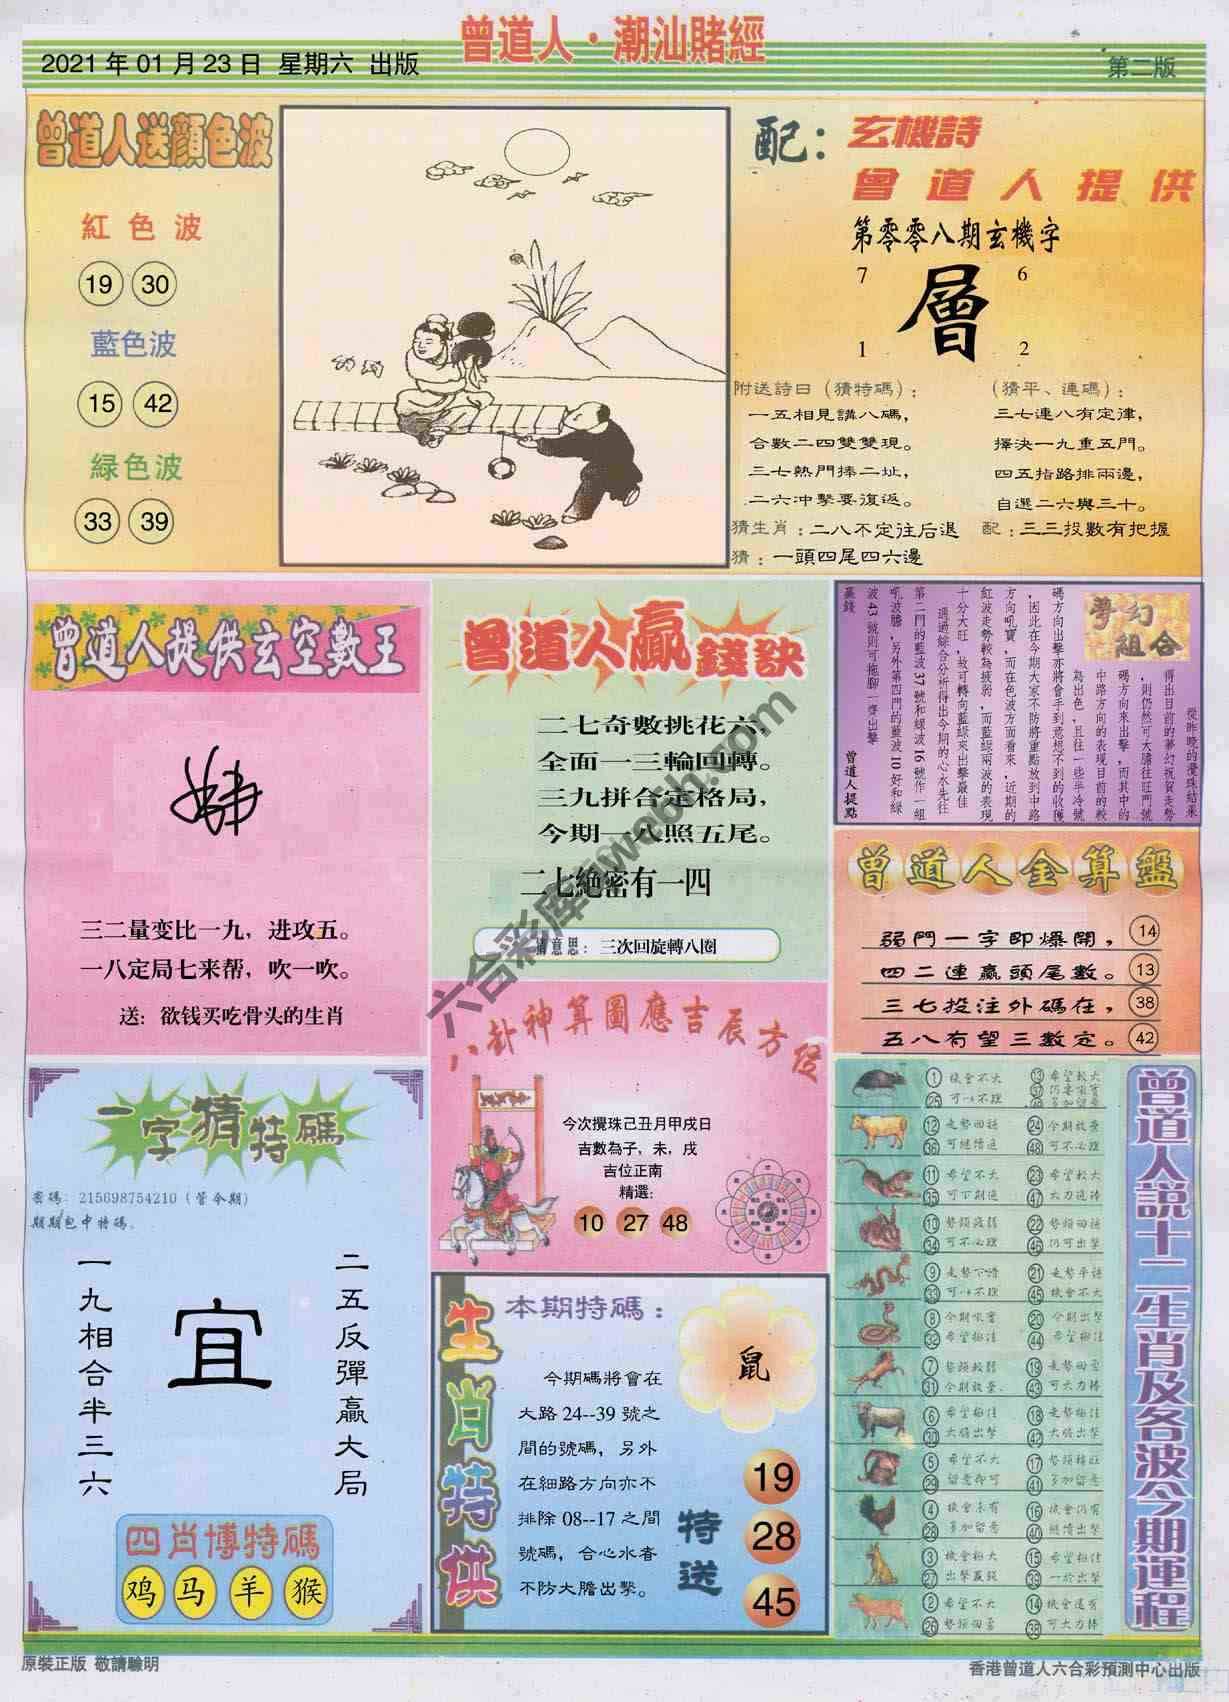 曾道人·潮汕賭經
2021 年 01 月 23 日 星期六 出版
第二版
曾道人送顏色波
紅色波
19 30
藍色波
15 42
緑色波
33 39
配：玄機詩
曾道人提供
第零零八期玄機字
7 6
層
1 2
附送詩曰（猜特碼）：
一五相見講八碼，
合數二四雙雙現。
三七熱門捧二址，
二六冲擊要復返。
（猜平、連碼）：
三七連八有定律，
擇決一九重五門。
四五指路排兩邊，
自選二六與三十。
猜生肖：二八不定往后退
配：三三投數有把握
猜：一頭四尾四六邊
曾道人提供玄空數王
三二量变比一九，进攻五。
一八定局七来帮，吹一吹。
送：欲钱买吃骨头的生肖
曾道人贏錢訣
二七奇數挑花六，
全面一三輪回轉。
三九拼合定格局，
今期一八照五尾。
二七絶密有一四
猜意思：三次回旋轉八圈
夢幻組合
從昨晚的攪珠結果
得出目前的夢幻祝賀走勢
，則仍然可大膽往旺門號
碼方向來出擊，而其中的
中路方向的表現目前的較
為出色，且往一些半冷號
碼方向出擊亦將會手到意想不到的收穫
，因此在今期大家不防將重點放到中路
方向吼寶，而在色波方面看來，近期的
紅波走勢較為疲弱，而藍緑兩波的表現
十分大旺，故可轉向藍緑來出擊最佳
通過綜合分析得出今期的心水先往
第二門的藍波37號和緑波16號作一組
吼波膽，另外第四門的藍波10好和緑
波43號則可拖脚一齊出擊
贏錢
曾道人提點
曾道人金算盤
弱門一字即爆開， 14
四二連贏頭尾數。 13
三七投注外碼在， 38
五八有望三數定。 42
八卦神算圖應吉辰方位
今次攪珠己丑月甲戌日
吉數為子，未，戌
吉位正南
精選：
10 27 48
一字猜特碼
密碼：215698754210（管今期）
期期包中特碼。
二五反彈贏大局
宜
一九相合半三六
四肖博特碼
鸡 马 羊 猴
生肖特供
本期特碼：
鼠
今期碼將會在
大路 24--39 號之
間的號碼，另外
在細路方向亦不
排除 08--17 之間
號碼，合心水者
不防大膽出擊。
特送
19
28
45
曾道人說十二生肖及各波今期運程
① 機會不大 ⑬ 希望較大
㉕ 可以不理
⑫ 走勢回穩 ㉔ 今期放棄
㊱ 可繼續追 ㊽ 可不必理
⑪ 希望不大 ㉓ 希望較大
㉟ 可下期追 ㊼ 大力追捧
⑩ 勢頭疲弱 ㉒ 勢頭回穩
㉞ 可不必理 ㊻ 仍可出擊
⑨ 走勢下滑 ㉑ 走勢平穩
㉝ 可以不理 ㊺ 機會不大
⑧ 今期吼實 ⑳ 今期出擊
㉜ 希望極佳 ㊹ 希望極佳
⑦ 勢頭較弱 ⑲ 走勢回落
㉛ 今期放棄 ㊸ 可大力捧
⑥ 希望極佳 ⑱ 走勢極佳
㉚ 大膽出擊 ㊷ 大膽出擊
⑤ 希望不大 ⑰ 勢頭轉旺
㉙ 留意即可 ㊶ 多加留意
④ 機會未有 ⑯ 機會仍有
㉘ 多加留意 ㊵ 繼續出擊
③ 機會極大 ⑮ 希望極佳
㉗ 出擊贏錢 ㊴ 一於出擊
② 希望不大 ⑭ 機會還有
㉖ 勢頭回落 ㊳ 可大力捧
六合彩库www.wabh.com
原裝正版 敬請驗明
香港曾道人六合彩預測中心出版